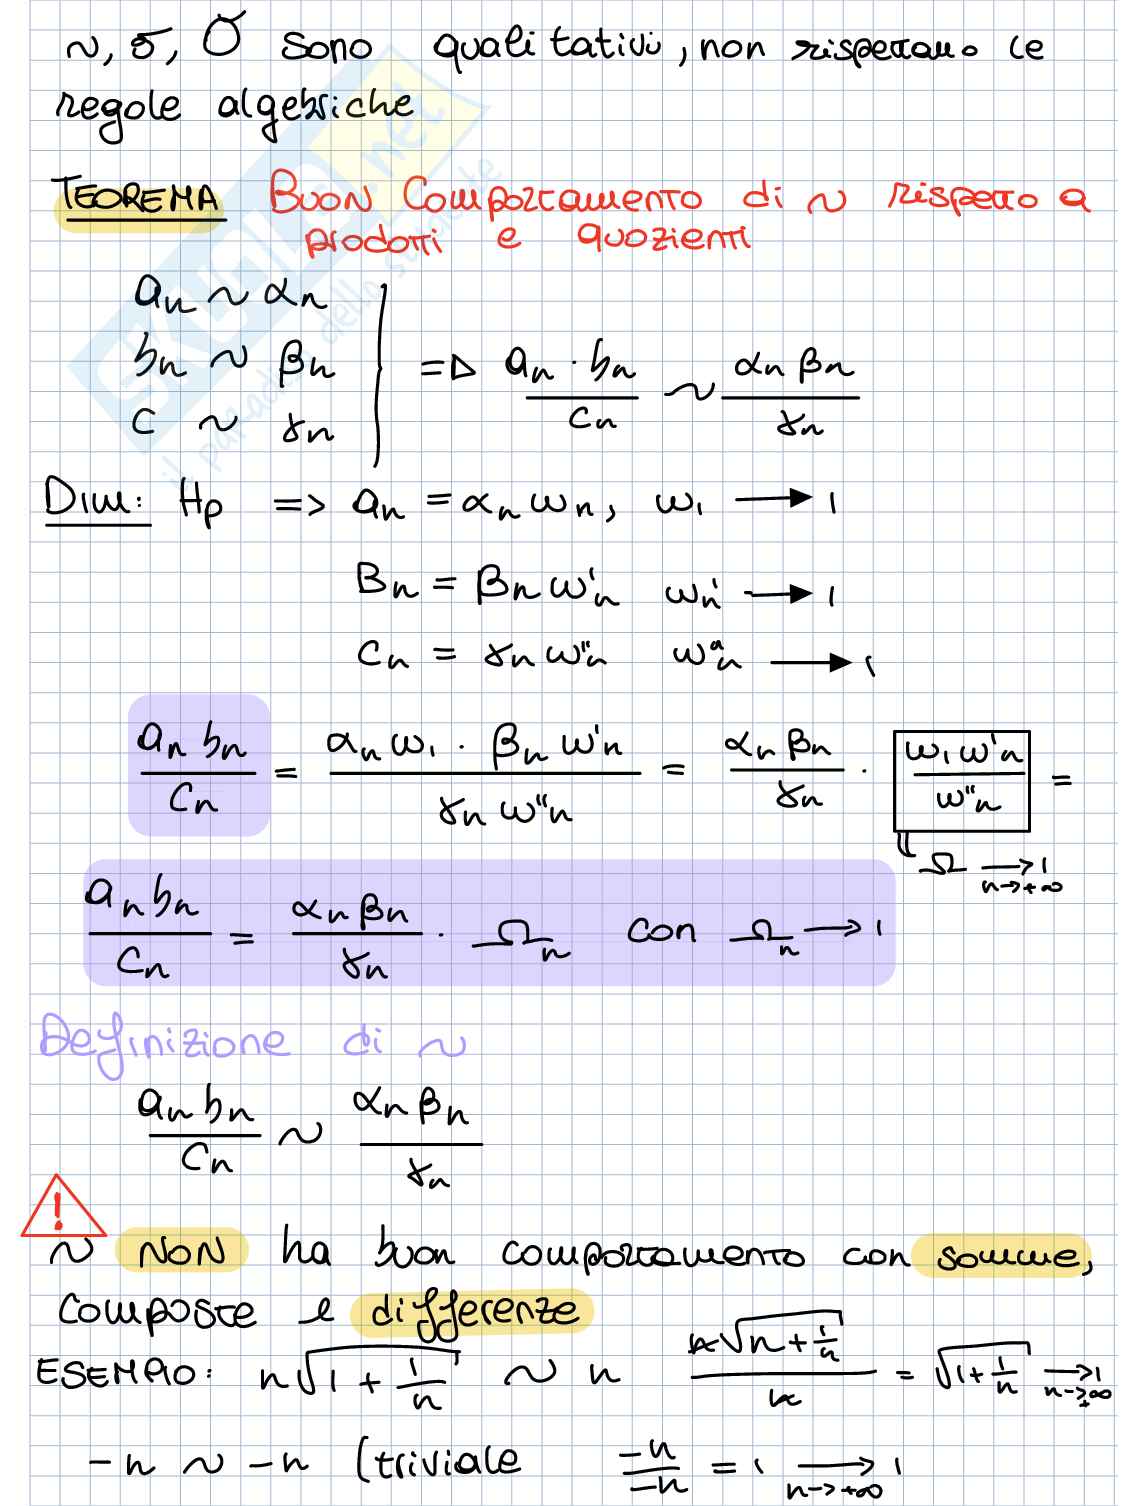 ~, σ, O sono qualitativi, non rispettano le
regole algebriche
TEOREMA Buon Comportamento di ~ rispetto a
prodotti e quozienti
aₙ ~ αₙ
bₙ ~ βₙ => (aₙ · bₙ)/cₙ ~ (αₙ βₙ)/γₙ
c ~ γₙ
Dim: Hp => aₙ = αₙ ωₙ, ω₁ → 1
Bₙ = βₙ ω'ₙ ω'ₙ → 1
Cₙ = γₙ ω''ₙ ω''ₙ → 1
(aₙ bₙ)/cₙ = (αₙ ω₁ · βₙ ω'ₙ)/(γₙ ω''ₙ) = (αₙ βₙ)/γₙ · (ω₁ ω'ₙ)/ω''ₙ =
Ω → 1 n→+∞
(aₙ bₙ)/cₙ = (αₙ βₙ)/γₙ · Ωₙ con Ωₙ → 1
Definizione di ~
(aₙ bₙ)/cₙ ~ (αₙ βₙ)/γₙ
!
~ NON ha buon comportamento con somme,
composte e differenze
ESEMPIO: n√(1 + 1/n) ~ n (n√(n + 1/n))/n = √(1 + 1/n) → 1 n→+∞
-n ~ -n (triviale -n/-n = 1 → 1 n→+∞
SKUOLA.net
il paradiso dello studente